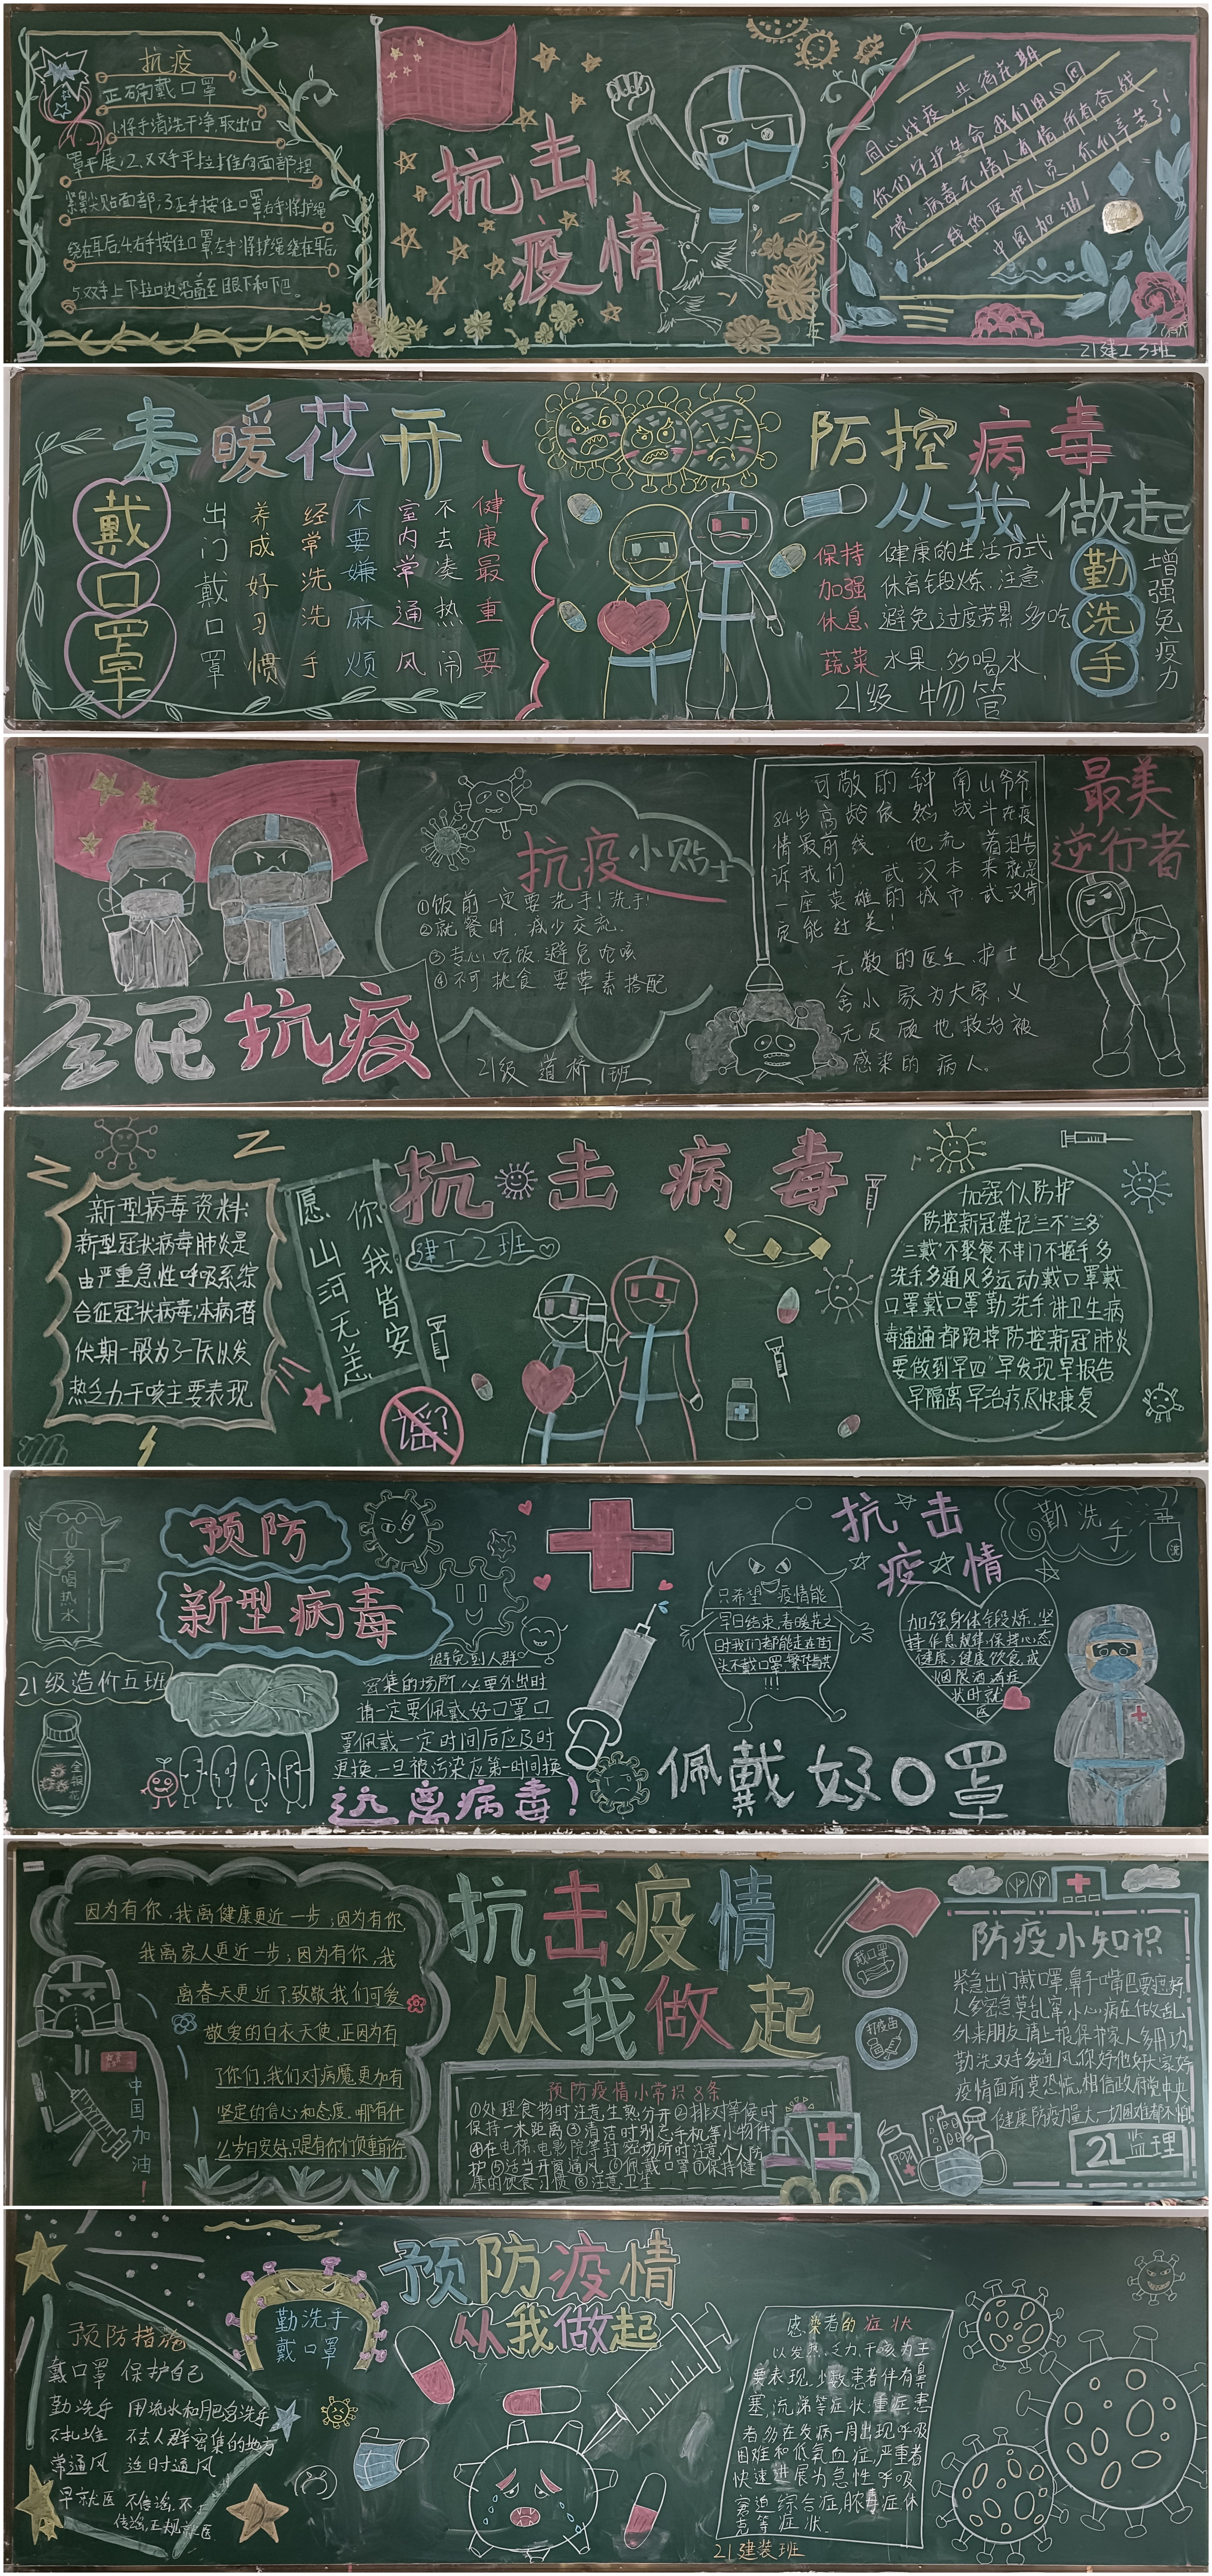 抗疫
正确戴口罩
1.将手清洗干净,取出口
罩平展;2.双手平拉推向面部,捏
紧鼻尖贴面部;3.左手按住口罩右手将护绳
绕在耳后4.右手按住口罩左手将护绳绕在耳后
5.双手上下拉口边沿盖至眼下和下巴。
抗击
疫情
同心战疫 共待花期
你们守护生命 我们用心回
馈!病毒无情人有情,所有奋战
在一线的医护人员,你们辛苦了!
中国加油!
21建工3班
春暖花开
戴口罩
出门戴口罩
养成好习惯
经常洗洗手
不要嫌麻烦
室内常通风
不去凑热闹
健康最重要
防控病毒
从我做起
保持 健康的生活方式
加强 体育锻炼、注意
休息 避免过度劳累 多吃
蔬菜 水果,多喝水
21级物管
勤洗手
增强免疫力
全民抗疫
抗疫小贴士
①饭前一定要洗手!洗手!
②就餐时,减少交流.
③专心吃饭,避免呛咳
④不可挑食 要荤素搭配
21级 道桥1班
可敬的钟南山爷爷
84岁高龄依然战斗在疫
情最前线.他流着泪告
诉我们:武汉本来就是
一座英雄的城市.武汉肯
定能过关!
无数的医生、护士
舍小家为大家,义
无反顾地救治被
感染的病人。
最美
逆行者
新型病毒资料:
新型冠状病毒肺炎是
由严重急性呼吸系综
合征冠状病毒,本病潜
伏期一般为3-7天以发
热乏力干咳主要表现
愿山河无恙
你我皆安
抗击病毒
建工2班
谣?
加强个人防护
防控新冠谨记"三不"三多"
三戴"不聚餐不串门不握手多
洗手多通风多运动戴口罩戴
口罩戴口罩勤洗手讲卫生病
毒通通都跑掉防控新冠肺炎
要做到早四"早发现早报告
早隔离早治疗尽快康复
多喝热水
预防
新型病毒
21级造价五班
金银花
避免到人群
密集的场所必要外出时
请一定要佩戴好口罩口
罩佩戴一定时间后应及时
更换,一旦被污染应第一时间换
远离病毒!
只希望 疫情能
早日结束,春暖花之
时我们都能走在街
头不戴口罩,繁华与共
!!!
抗击
疫情
加强身体锻炼,坚
持作息规律,保持心态
健康,健康饮食,戒
烟限酒,有症
状时就
医
勤洗手
洗
佩戴好口罩
因为有你,我离健康更近一步;因为有你,
我离家人更近一步;因为有你,我
离春天更近了致敬我们可爱
敬爱的白衣天使,正因为有
了你们,我们对病魔更加有
坚定的信心和态度.哪有什
么岁月安好,只是有你们负重前行
中国加油!
抗击疫情
从我做起
预防疫情小常识8条
①处理食物时注意生熟分开②排对等候时
保持一米距离③清洁时别忘手机等小物件
④在电梯,电影院等封密场所时注意个人防
护⑤适当开窗通风⑥佩戴口罩⑦保持健
康的饮食习惯⑧注意卫生
戴口罩
打疫苗
防疫小知识
紧急出门戴口罩,鼻子嘴巴要遮好
人多密急莫乱窜,小心病在做乱
外来朋友请上报,保护家人多用功
勤洗双手多通风,你好他好大家好
疫情面前莫恐慌,相信政府党中央
健康防疫力量大,一切困难都不怕
21监理
预防措施
戴口罩 保护自己
勤洗手 用流水和肥皂洗手
不扎堆 不去人群密集的地方
常通风 适时通风
早就医 不信谣,不
传谣,正规就医
勤洗手
戴口罩
预防疫情
从我做起
感染者的症状
以发热、乏力、干咳为主
要表现,少数患者伴有鼻
塞,流涕等症状,重症患
者多在发病一周出现呼吸
困难和低氧血症,严重者
快速进展为急性呼吸
窘迫综合症,脓毒症休
克等症状.
21建装班